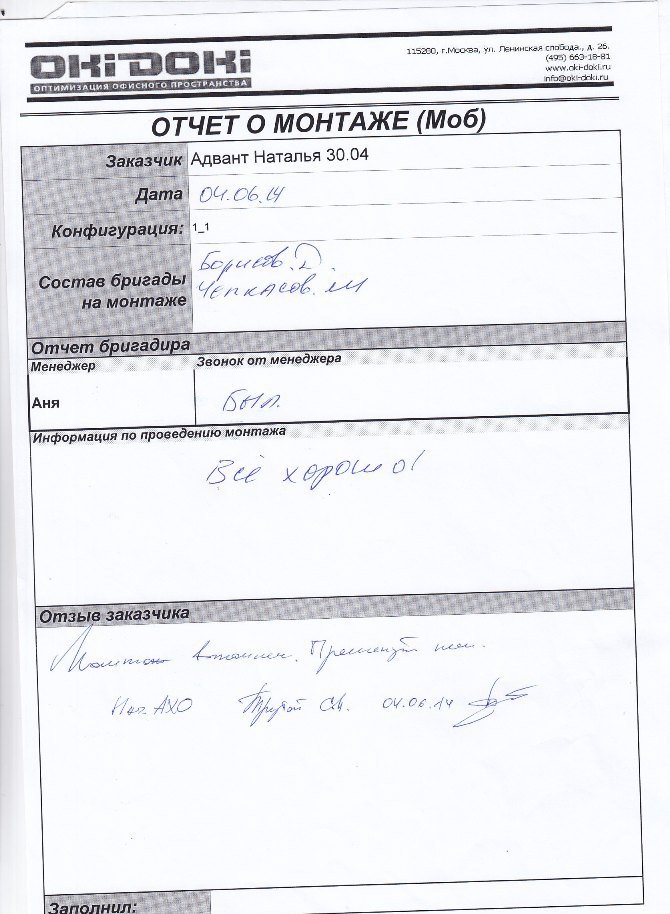 OKIDOKI
ОПТИМИЗАЦИЯ ОФИСНОГО ПРОСТРАНСТВА
115280, г.Москва, ул. Ленинская слобода., д. 26.
(495) 663-18-81
www.oki-doki.ru
info@oki-doki.ru
ОТЧЕТ О МОНТАЖЕ (Моб)
Заказчик Адвант Наталья 30.04
Дата 04.06.14
Конфигурация: 1_1
Состав бригады на монтаже
Борисов. Д.
Чепкасов. М
Отчет бригадира
Менеджер Звонок от менеджера
Аня Был.
Информация по проведению монтажа
Всё хорошо!
Отзыв заказчика
Монтаж выполнен. Претензий нет.
Нач. АХО 04.06.14
Заполнил: